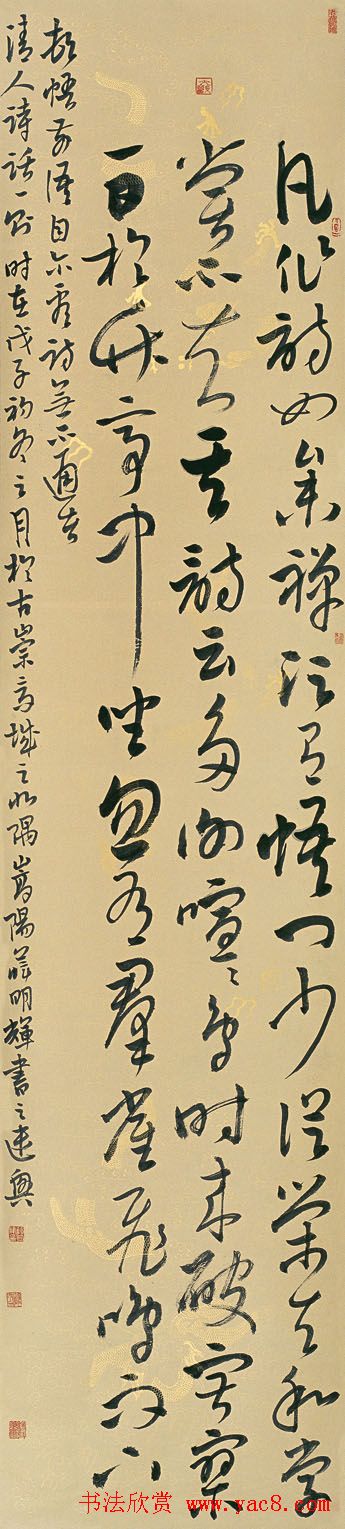 凡作詩如參禪須有悟門少從榮天和學
嘗不解其詩云多謝喧〻雀時來破寂寥
一日於竹亭中坐忽有羣雀飛鳴而下
頓悟前語自尔看詩無不通者
清人詩話一則時在戊子初冬之月於古崇高城之北隅嵩陽明輝書之遣興
书法欣赏 www.yac8.com